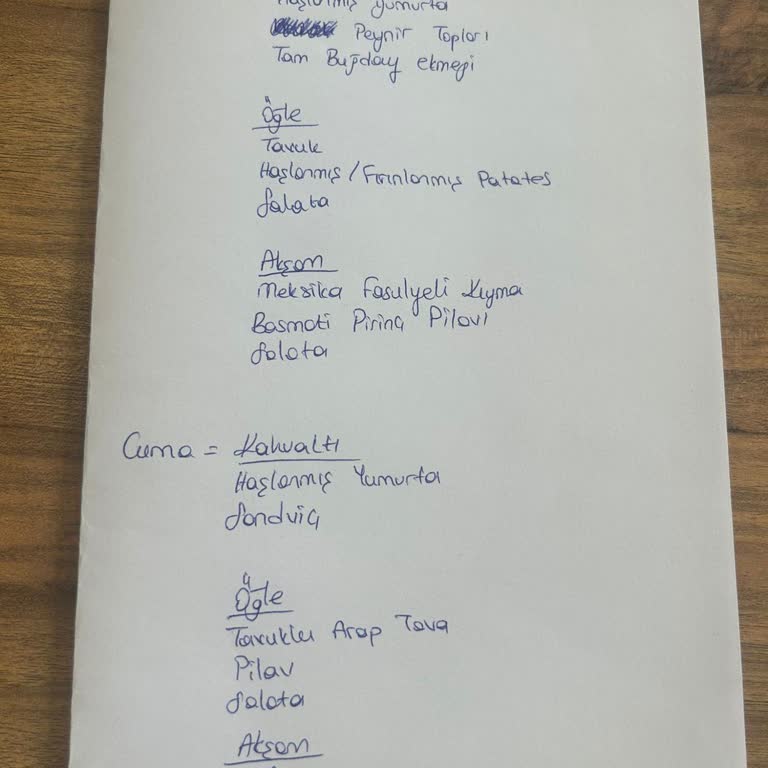 Haşlanmış yumurta
Peynir Topları
Tam Buğday ekmeği
Öğle
Tavuk
Haşlanmış / Fırınlanmış Patates
Salata
Akşam
Meksika Fasulyeli Kıyma
Basmati Pirinç Pilavı
Salata
Cuma = Kahvaltı
Haşlanmış Yumurta
Sandviç
Öğle
Tavuklu Arap Tava
Pilav
Salata
Akşam